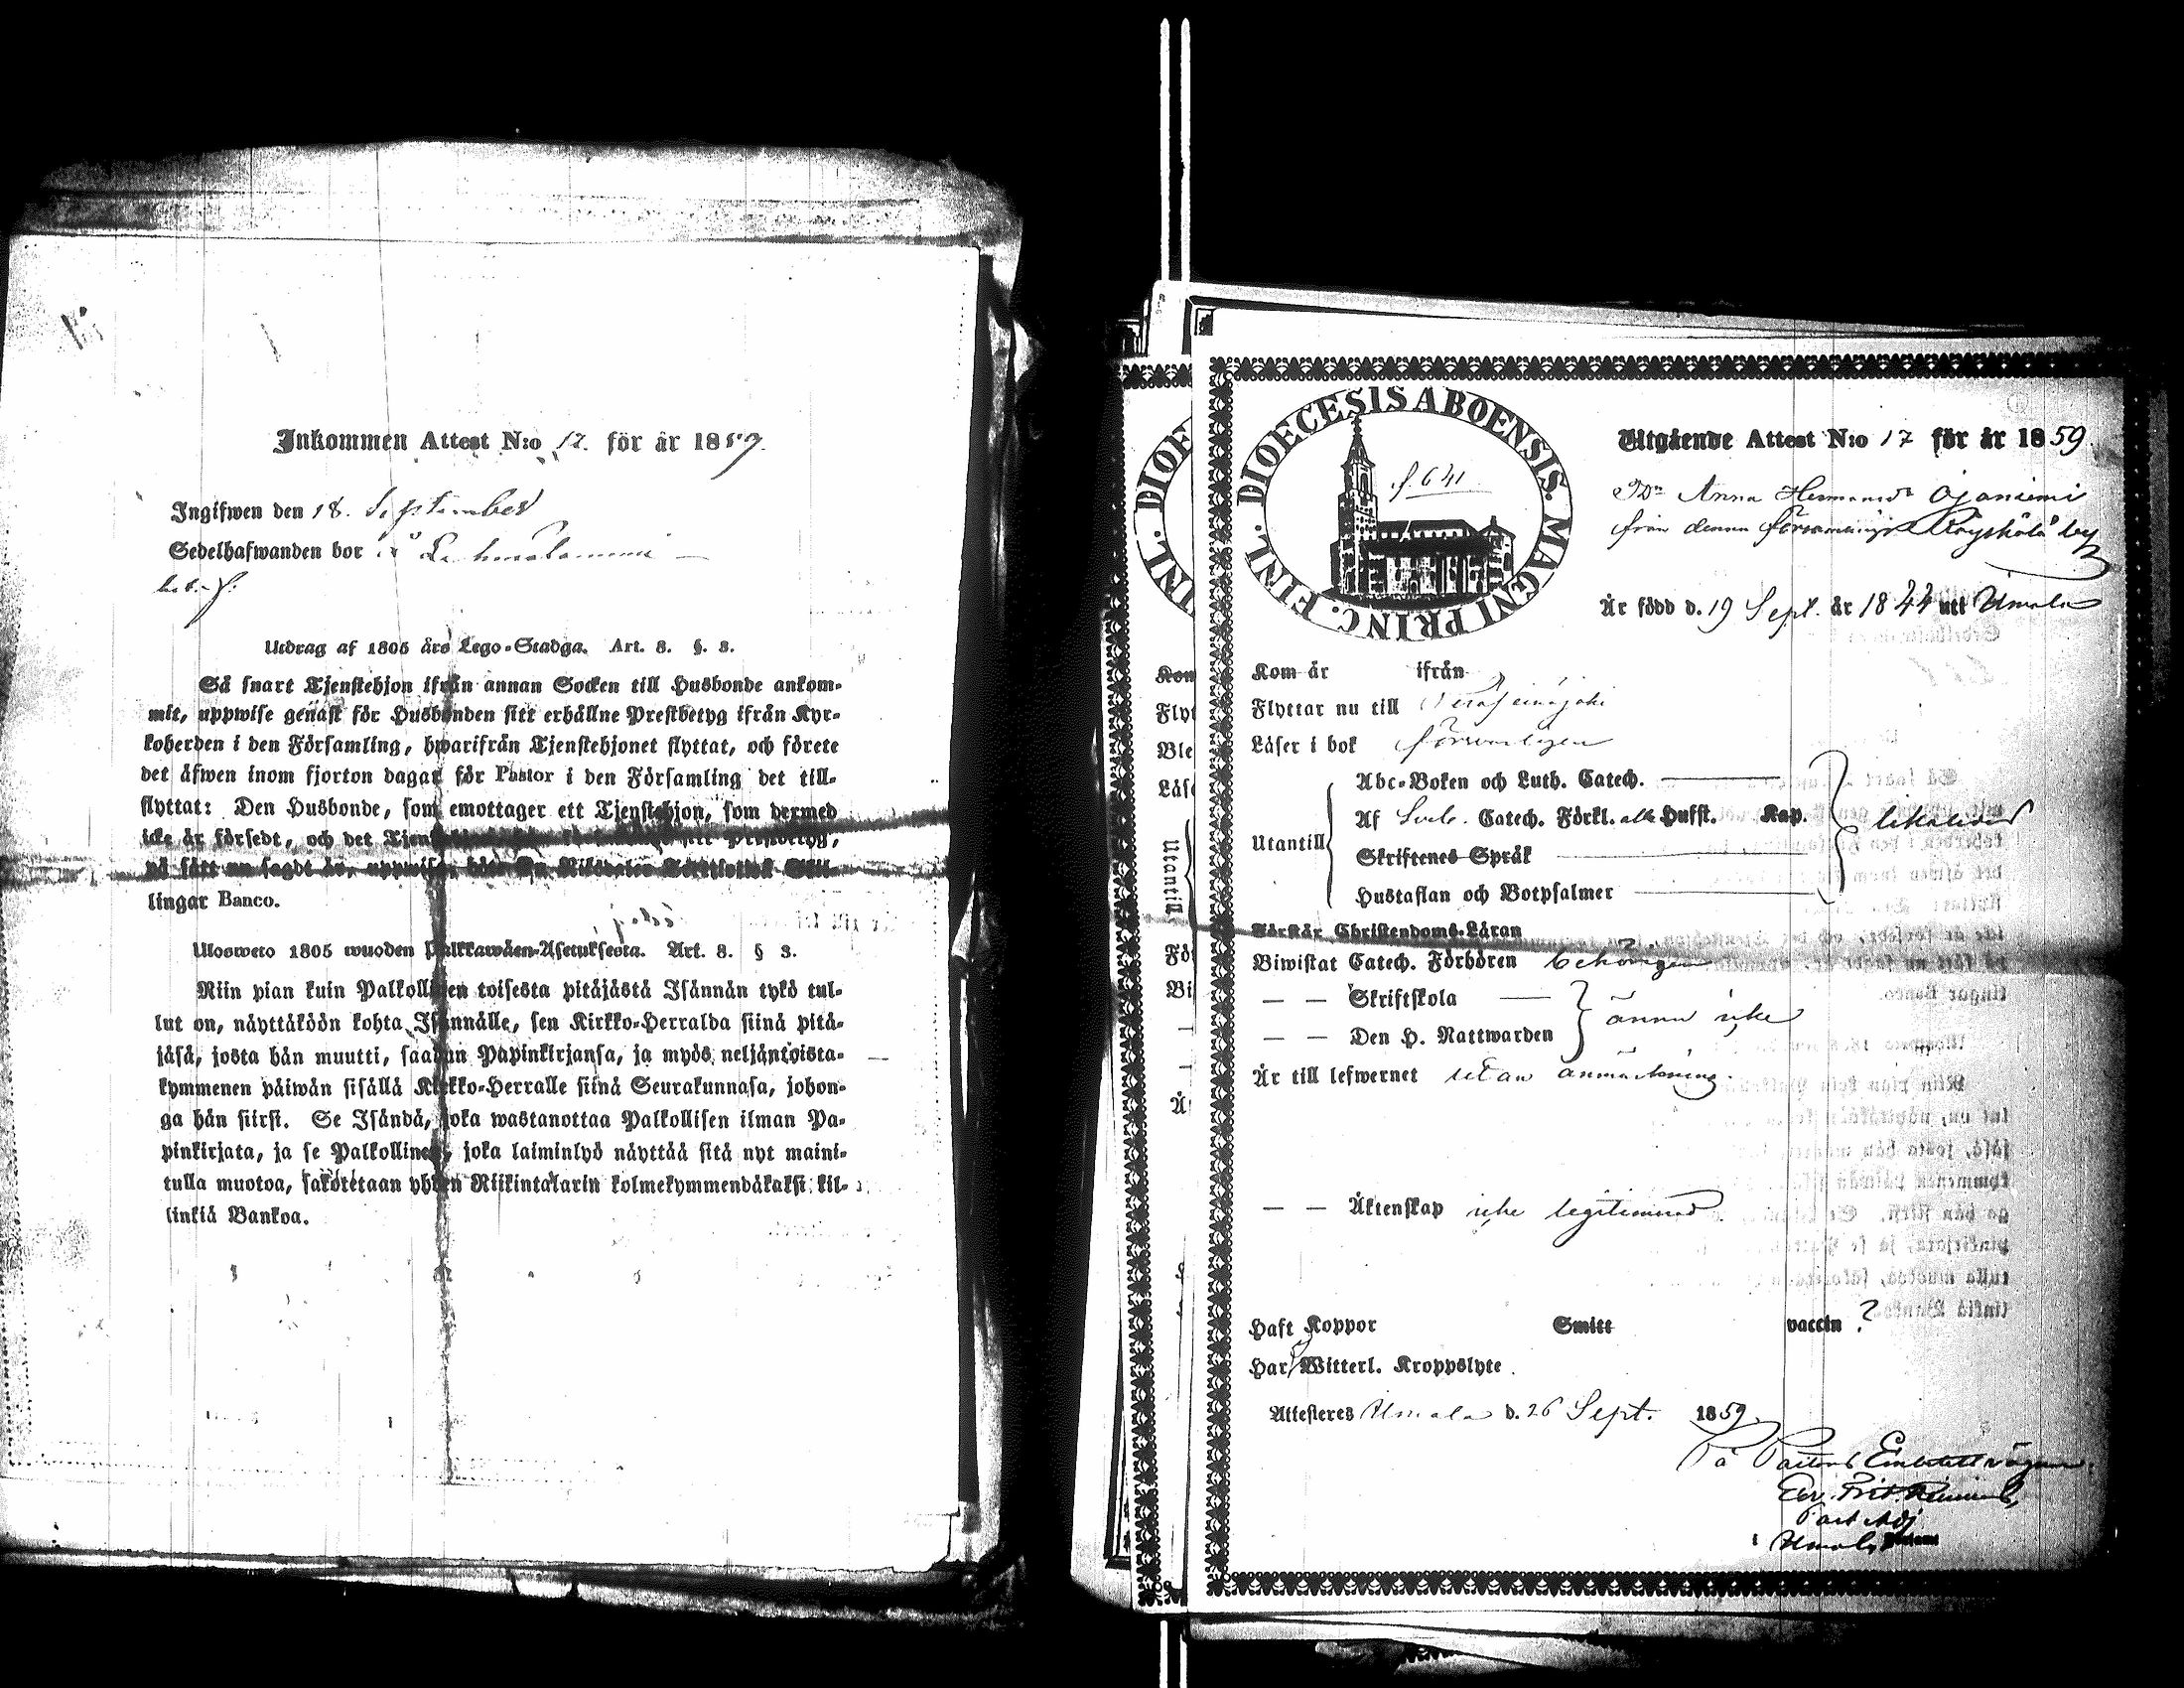 Inkommen Attest N:o 12. för år 1859.
Ingifwen den 18. September
Sedelhafwanden bor
Utdrag af 1805 års Lego-Stadga. Art. 8. §. 3.
Så snart Tjenstehjon ifrån annan Socken till Husbonde ankom-
mit, uppwise genast för Husbonden sitt erhållne Prestbetyg ifrån Kyr-
koherden i den Församling, hwarifrån Tjenstehjonet flyttat, och förete
det äfwen inom fjorton dagar för Pastor i den Församling det till-
flyttat: Den Husbonde, som emottager ett Tjenstehjon, som dermed
icke är försedt, och det
på sätt nu sagdt är, uppwisa, böte En Riksdaler
lingar Banco.
Ulosweto 1805 wuoden Palkkawäen-Asetuksesta. Art. 8. § 3.
Niin pian kuin Palkollinen toisesta pitäjästä Isännän tykö tul-
lut on, näyttäköön kohta Isännälle, sen Kirkko-Herralda siinä pitä-
jäsä, josta hän muutti, saadun Papinkirjansa, ja myös neljäntoista-
kymmenen päiwän sisällä Kirkko-Herralle siinä Seurakunnasa, johon-
ga hän siirsi. Se Isändä, joka wastanottaa Palkollisen ilman Pa-
pinkirjata, ja se Palkollinen, joka laiminlyö näyttää sitä nyt maini-
tulla muotoa, sakotetaan yhden Riikintalarin kolmekymmendäkaksi kil-
linkiä Bankoa.
DIOECESIS ABOENSIS. MAGNI PRINC. FINL.
f 641
Utgående Attest N:o 17 för år 1859.
Anna Hermansdr Ojaniemi
från denna församlings Röyskölä by
Är född d. 19 Sept. år 1844 uti Urnala
Kom år ifrån
Flyttar nu till Peräseinäjoki
Läser i bok försvarligen
Utantill
Abc-Boken och Luth. Catech.
Af Sveb. Catech. Förkl. alla Hufst. Kap.
Skriftenes Språk
Hustaflan och Botpsalmer
likaledes
Förstår Christendoms-Läran
Biwistat Catech. Förhören behörigen
— — Skriftskola
— — Den H. Nattwarden
ännu icke
Är till lefwernet utan anmärkning.
— — Äktenskap icke legitimerad
Haft Koppor Smitt vaccin ?
Har Witterl. Kroppslyte
Attesteres Urnala d. 26 Sept. 1859.
På Pastors Embetets vägnar:
Past Adj